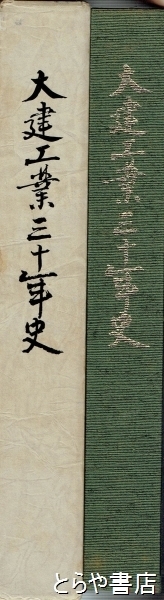 大建工業三十年史
大建工業三十年史
とらや書店